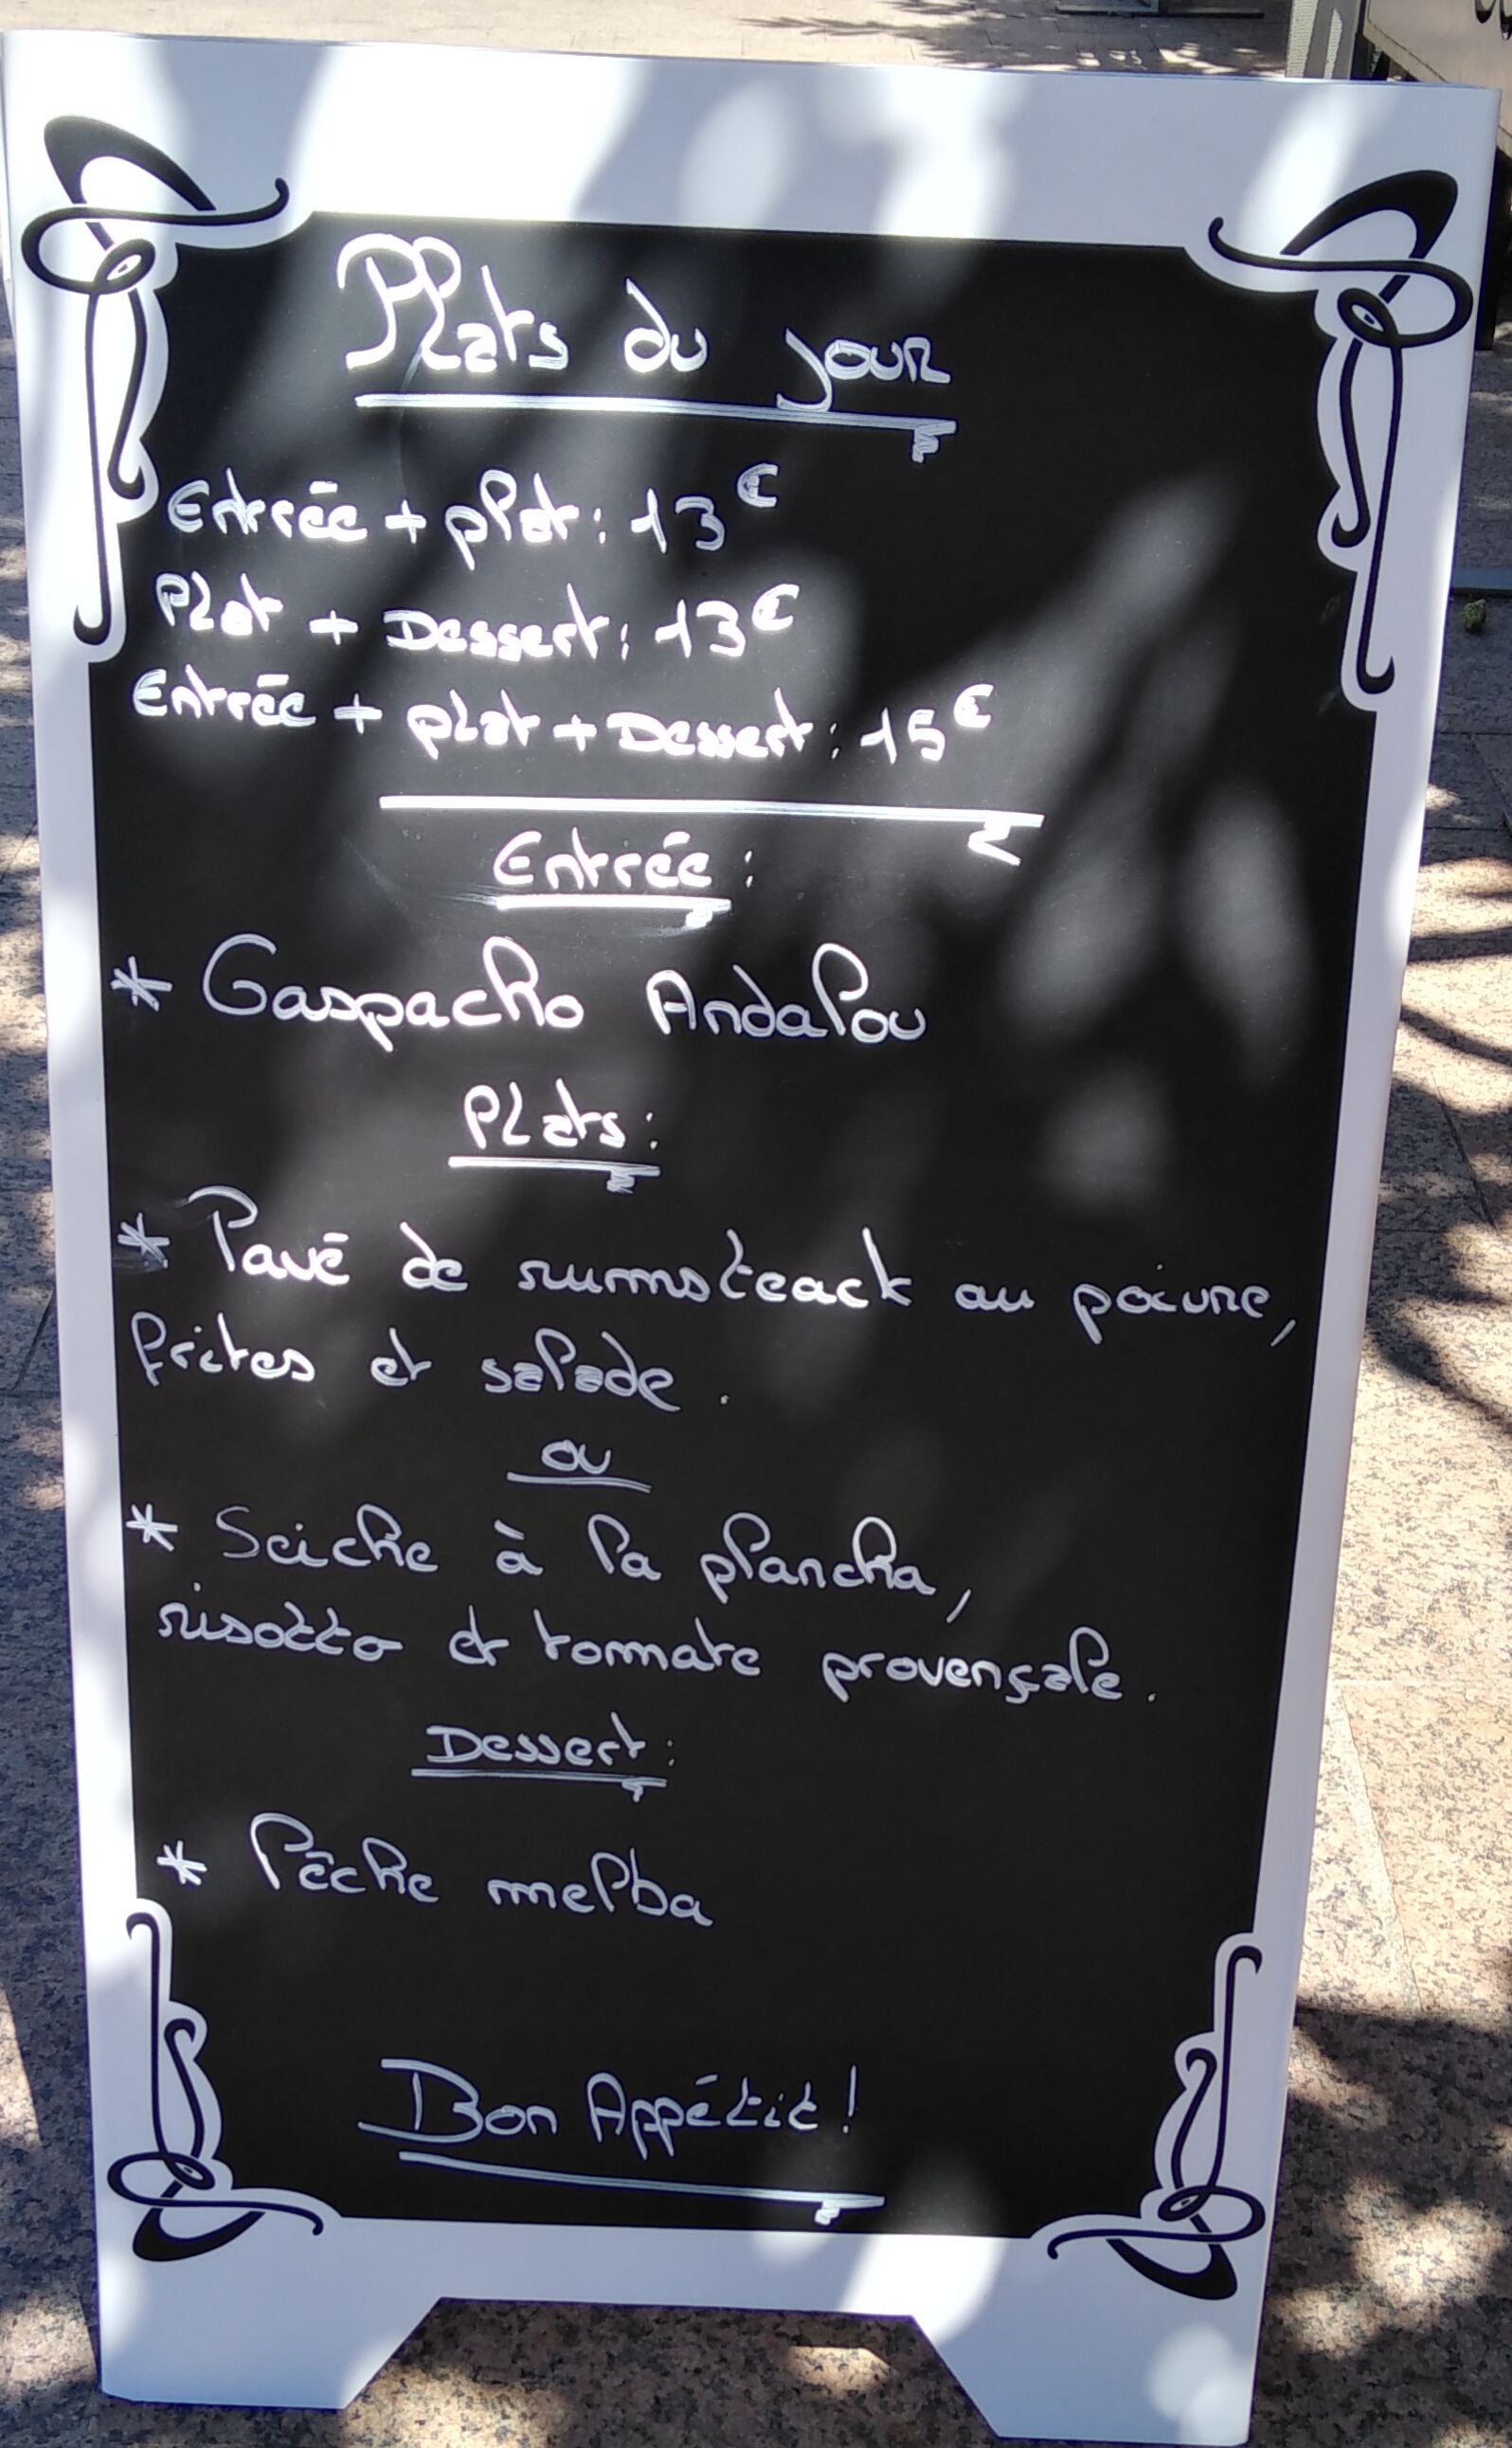 Plats du jour
Entrée + plat : 13€
Plat + Dessert : 13€
Entrée + plat + Dessert : 15€
Entrée :
* Gaspacho Andalou
Plats :
* Pavé de rumsteack au poivre,
frites et salade.
ou
* Seiche à la plancha,
risotto et tomate provençale.
Dessert :
* Pêche melba
Bon Appétit !